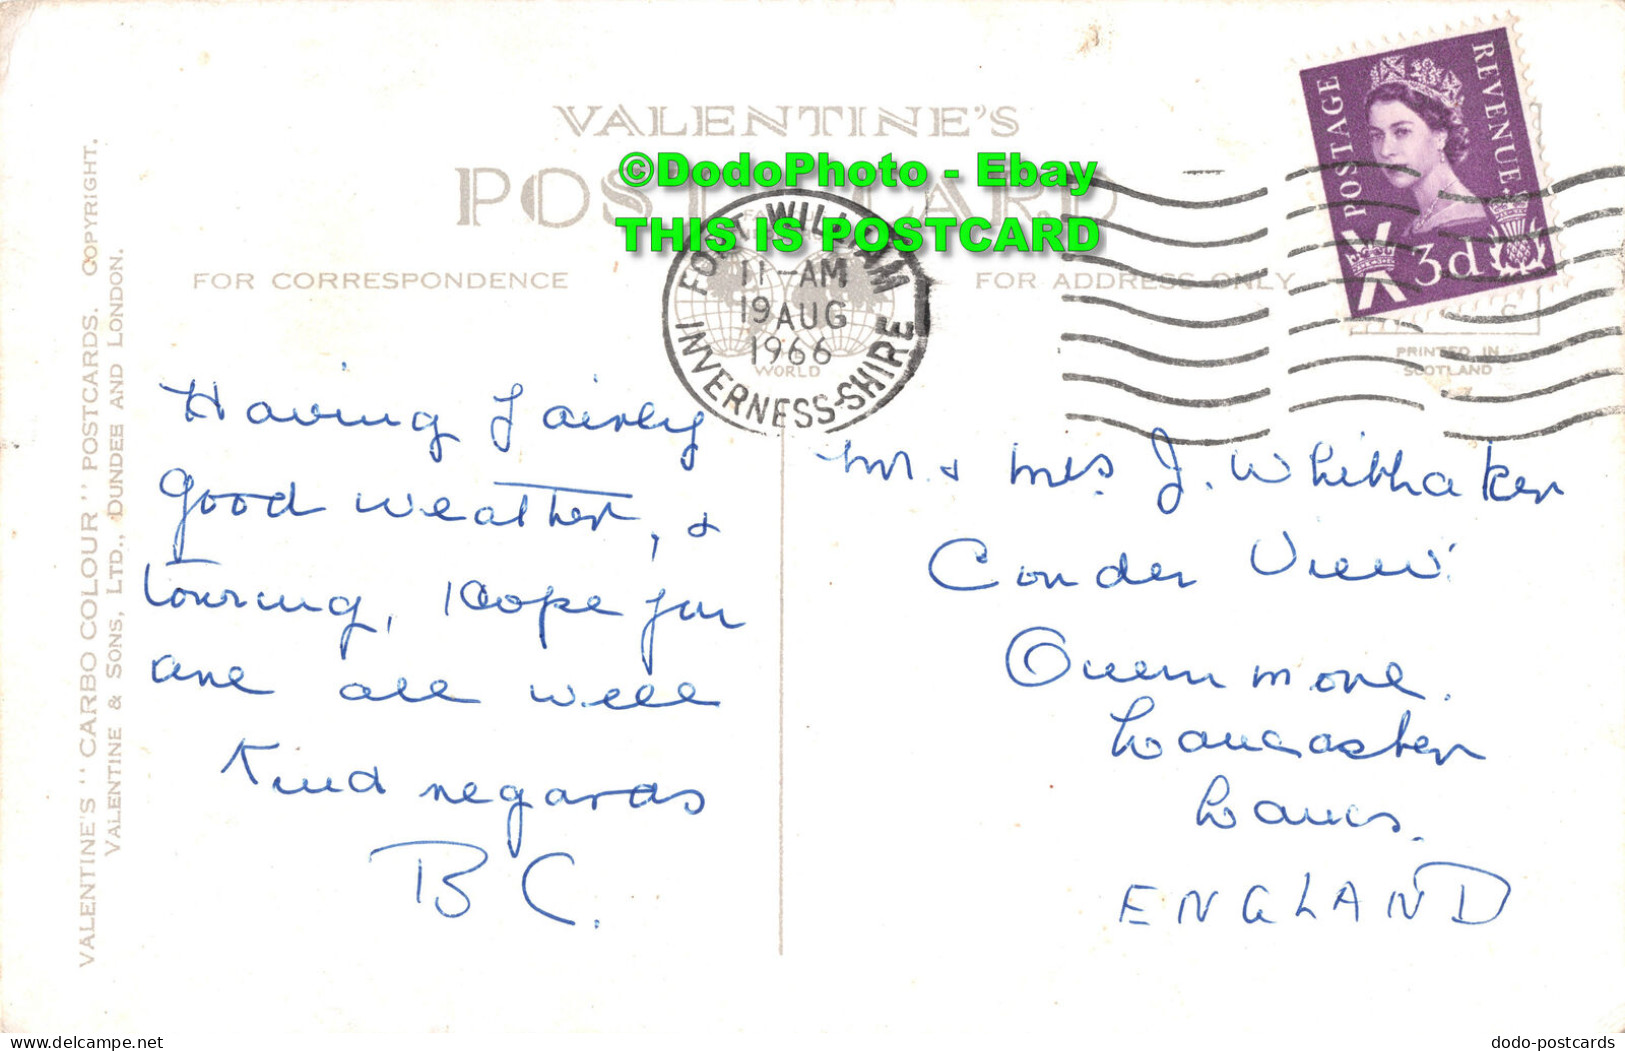 VALENTINE'S
POST CARD
©DodoPhoto - Ebay
THIS IS POSTCARD
FOR CORRESPONDENCE
FOR ADDRESS ONLY
POSTAGE
REVENUE
3d
FORT WILLIAM
11-AM
19 AUG
1966
INVERNESS-SHIRE
WORLD
PRINTED IN
SCOTLAND
VALENTINE'S "CARBO COLOUR" POSTCARDS. COPYRIGHT.
VALENTINE & SONS, LTD., DUNDEE AND LONDON.
Having fairly
good weather, &
touring, Hope you
are all well
Kind regards
B C.
Mr. & Mrs J. Whitthaker
Conder View.
Quernmore.
Lancaster
Lancs.
ENGLAND
delcampe.net
dodo-postcards